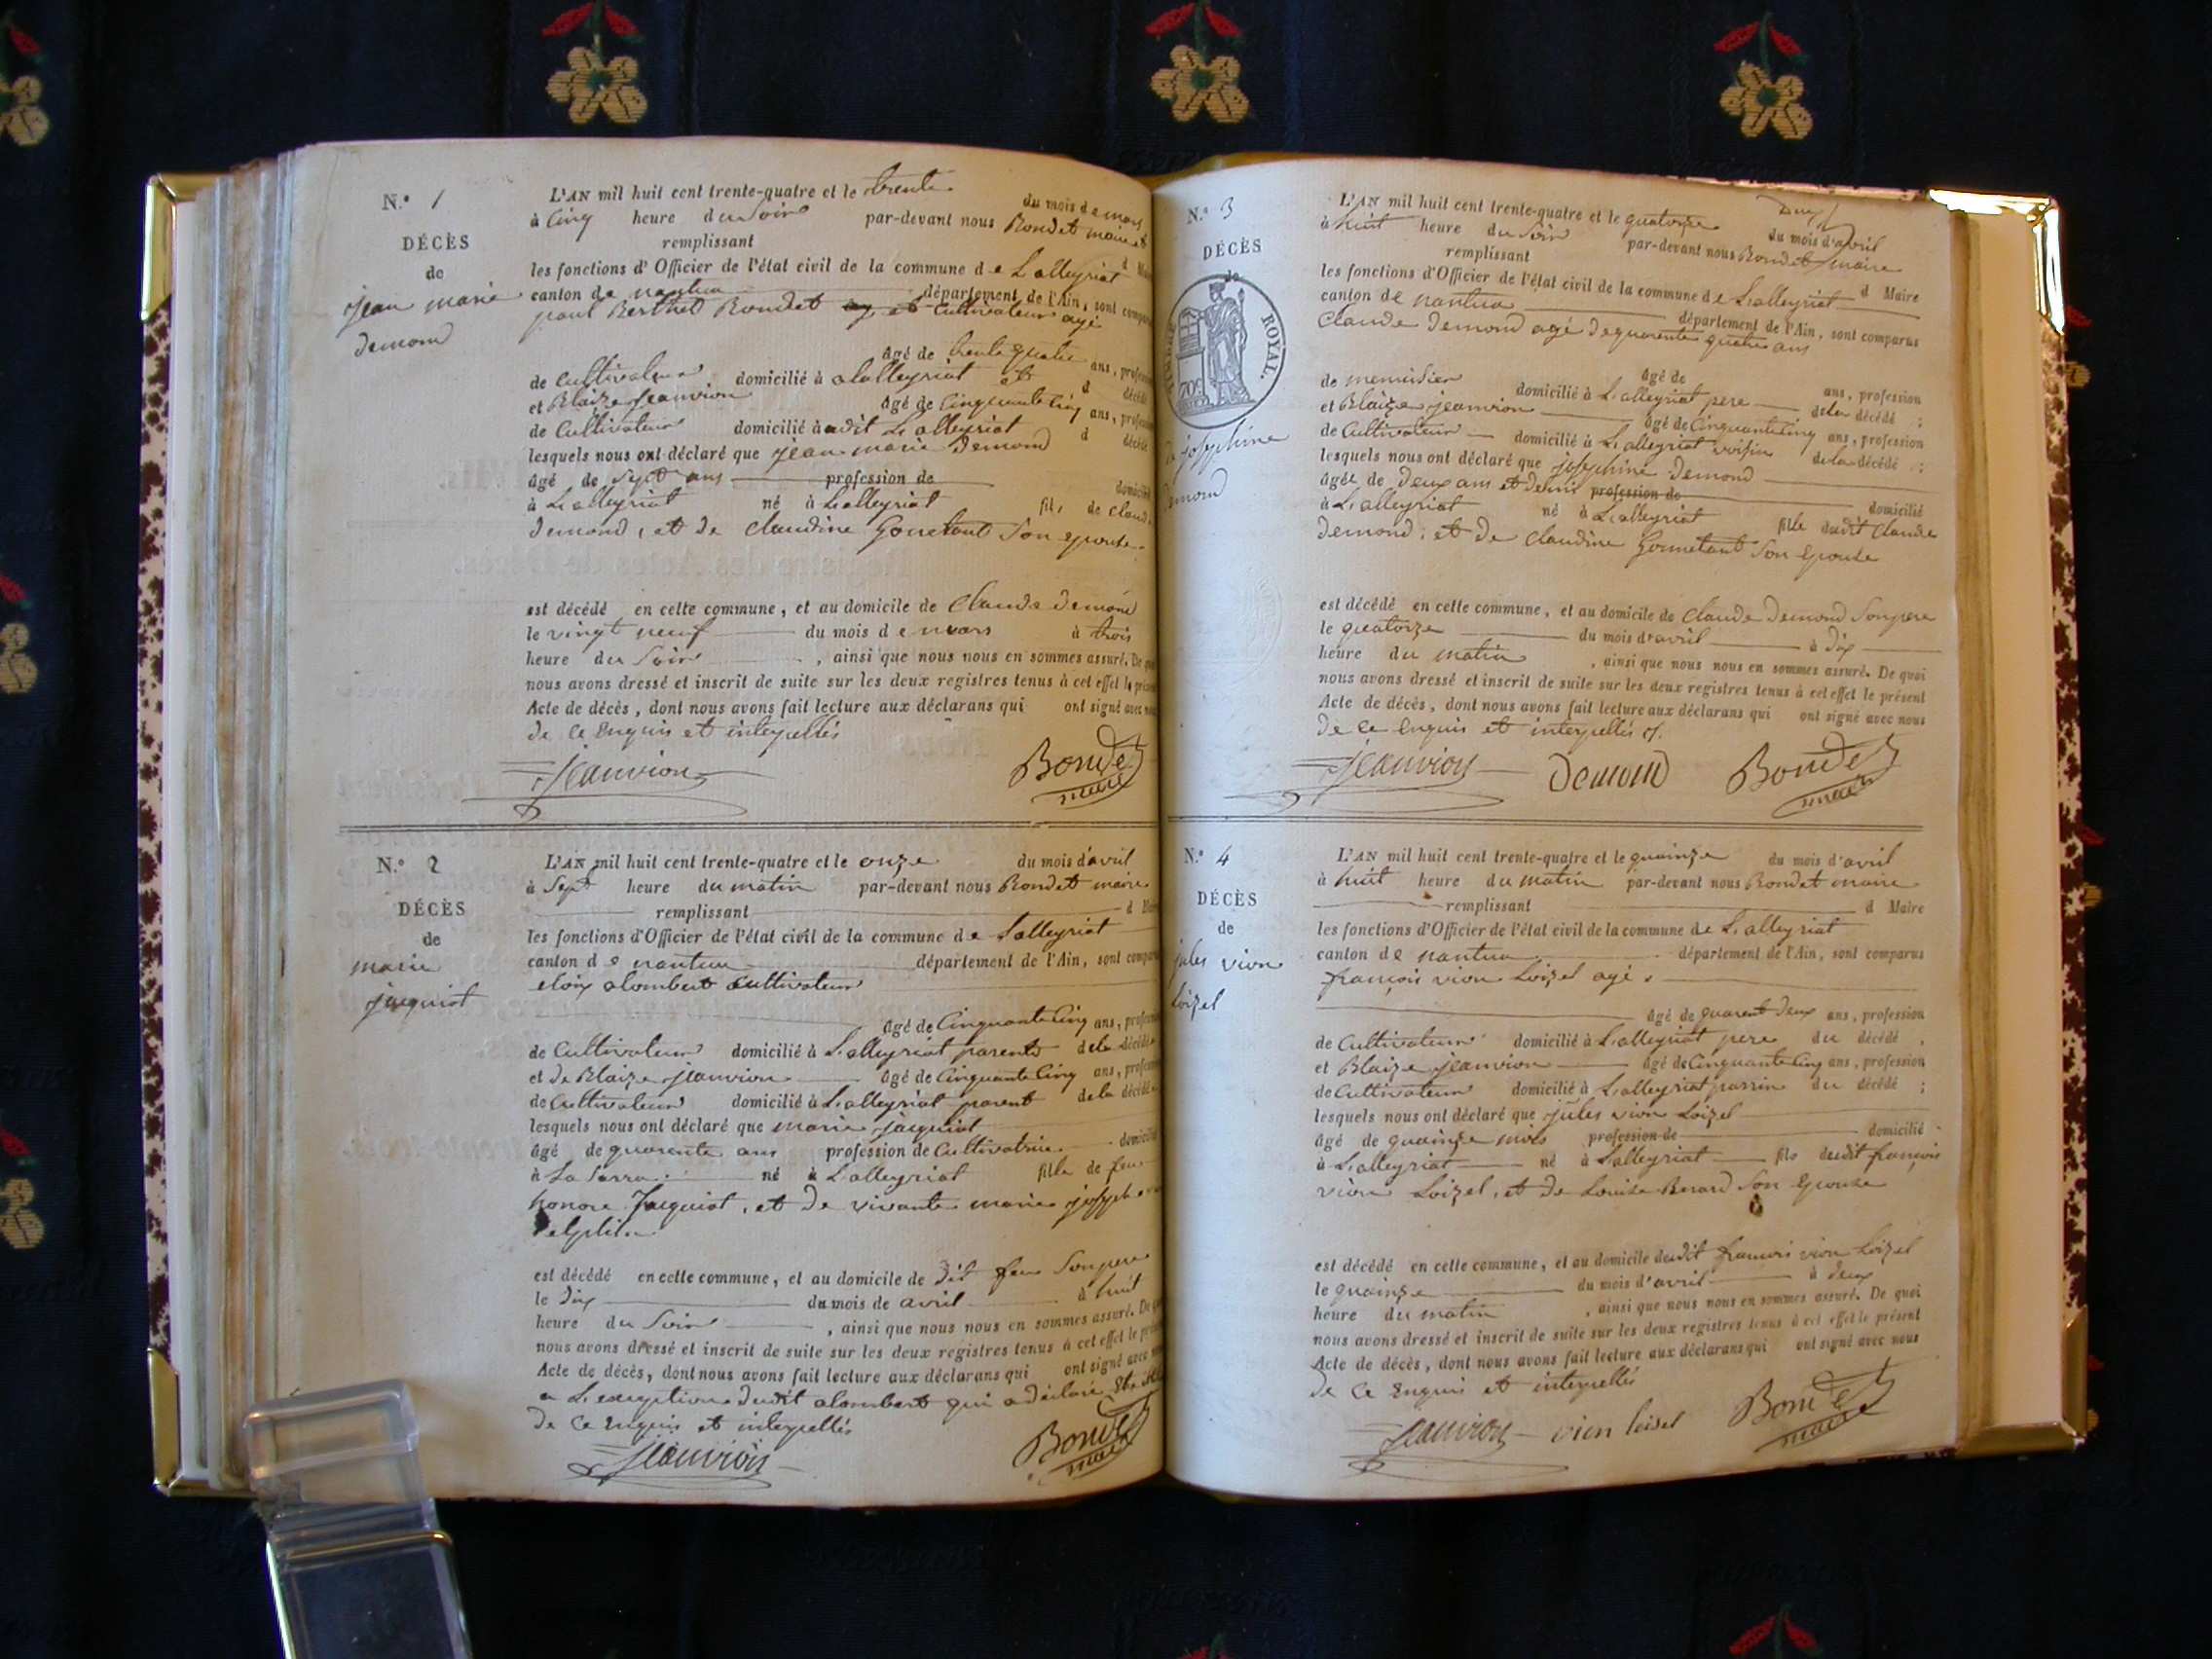 N.º 1
DÉCÈS
de
jean marie
demond
L'AN mil huit cent trente-quatre et le trente
du mois de mars
à cinq heure du soir par-devant nous Bondet maire
remplissant
les fonctions d'Officier de l'état civil de la commune de Lalleyriat
canton de nantua département de l'Ain, sont
paul Berthet Bondet cultivateur agé
âgé de trente quatre ans,
de cultivateur domicilié à Lalleyriat et
et Blaize jeanvion âgé de cinquante cinq ans,
de cultivateur domicilié audit Lalleyriat
lesquels nous ont déclaré que jean marie demond
âgé de sept ans profession de
à Lalleyriat né à Lalleyriat fils de
demond, et de claudine Gonetant son epouse
est décédé en cette commune, et au domicile de claude demond
le vingt neuf du mois de mars à trois
heure du soir , ainsi que nous nous en sommes assuré. De
nous avons dressé et inscrit de suite sur les deux registres tenus à cet effet le
Acte de décès, dont nous avons fait lecture aux déclarans qui ont signé avec
de ce enquis et interpellés
jeanvion Bondet
maire
N.º 2
DÉCÈS
de
marie
jacquiot
L'AN mil huit cent trente-quatre et le onze du mois d'avril
à sept heure du matin par-devant nous Bondet maire
remplissant d
les fonctions d'Officier de l'état civil de la commune de Lalleyriat
canton de nantua département de l'Ain, sont
eloix alombert cultivateur
âgé de cinquante cinq ans,
de cultivateur domicilié à Lalleyriat parent de la
et de Blaize jeanvion âgé de cinquante cinq ans,
de cultivateur domicilié à Lalleyriat parent de la
lesquels nous ont déclaré que marie jacquiot
âgé de quarante ans profession de cultivatrice
à né à Lalleyriat fille de feu
honore Jacquiot, et de vivante marie
est décédé en cette commune, et au domicile de dit feu son pere
le dix du mois de avril à huit
heure du soir , ainsi que nous nous en sommes assuré. De
nous avons dressé et inscrit de suite sur les deux registres tenus à cet effet le
Acte de décès, dont nous avons fait lecture aux déclarans qui ont signé avec
a L'exeption dudit alombert qui a déclaré
de ce enquis et interpellés
jeanvion Bondet
maire
N.º 3
DÉCÈS
de
TIMBRE ROYAL.
70c
josephine
demond
L'AN mil huit cent trente-quatre et le quatorze du mois d'avril
à huit heure du soir par-devant nous Bondet maire
remplissant d Maire
les fonctions d'Officier de l'état civil de la commune de Lalleyriat
canton de nantua département de l'Ain, sont comparus
Claude demond agé de quarente quatre ans
âgé de ans, profession
de menuisier domicilié à Lalleyriat pere de la décédé ;
et Blaize jeanvion âgé de cinquante cinq ans, profession
de cultivateur domicilié à Lalleyriat voisin de la décédé ;
lesquels nous ont déclaré que josephine demond
âgée de deux ans et demi profession de domicilié
à Lalleyriat né à Lalleyriat fille dudit claude
demond, et de claudine Gonnetant son epouse
est décédé en cette commune, et au domicile de claude demond son pere
le quatorze du mois d'avril à dix
heure du matin , ainsi que nous nous en sommes assuré. De quoi
nous avons dressé et inscrit de suite sur les deux registres tenus à cet effet le présent
Acte de décès, dont nous avons fait lecture aux déclarans qui ont signé avec nous
de ce enquis et interpellés
jeanvion Demond Bondet
maire
N.º 4
DÉCÈS
de
jules vion
Loizel
L'AN mil huit cent trente-quatre et le quainze du mois d'avril
à huit heure du matin par-devant nous Bondet maire
remplissant d Maire
les fonctions d'Officier de l'état civil de la commune de Lalleyriat
canton de nantua département de l'Ain, sont comparus
françois vion Loizel agé
âgé de quarent deux ans, profession
de cultivateur domicilié à Lalleyriat pere du décédé ,
et Blaize jeanvion âgé de cinquante cinq ans, profession
de cultivateur domicilié à Lalleyriat parrin du décédé ;
lesquels nous ont déclaré que jules vion Loizel
âgé de quainze mois profession de domicilié
à Lalleyriat né à Lalleyriat fils dudit françois
vion Loizel, et de Louise Berard son epouse
est décédé en cette commune, et au domicile dudit francois vion Loizel
le quainze du mois d'avril à deux
heure du matin , ainsi que nous nous en sommes assuré. De quoi
nous avons dressé et inscrit de suite sur les deux registres tenus à cet effet le présent
Acte de décès, dont nous avons fait lecture aux déclarans qui ont signé avec nous
de ce enquis et interpellés
jeanvion vion loisel Bondet
maire